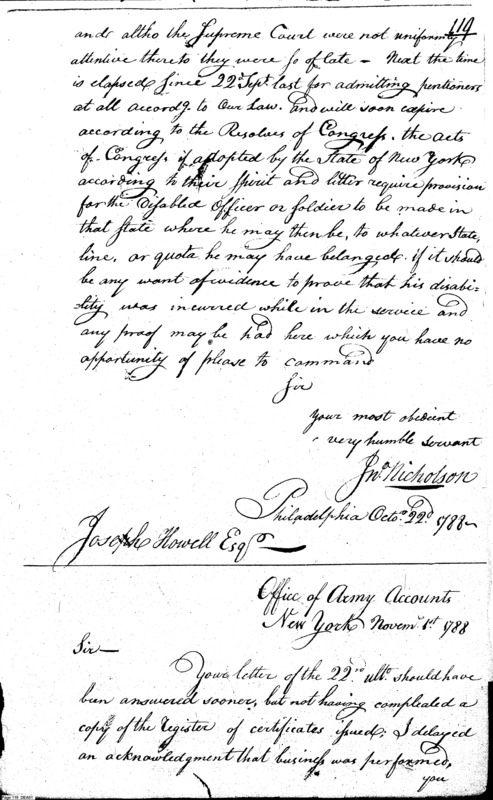 119
and altho the Supreme Court were not uniformly
attentive thereto they were so of late – Next the time
is elapsed since 22d Sept. last for admitting pentioners
at all accordg. to Our Law. and will soon expire
according to the Resolves of Congress. the acts
of Congress if adopted by the State of New York
according to their spirit and litter require provision
for the Disabled Officer or Soldier to be made in
that State where he may then be, to whatever State,
line, or quota he may have belonged. if it should
be any want of evidence to prove that his disabi-
lity was incurred while in the service and
any proof may be had here which you have no
opportunity of please to command
Sir
Your most obedient
very humble servant
Jno. Nicholson
Philadelphia Octo. 22d. 1788
Joseph Howell Esqr.
Office of Army Accounts
New York Novemr. 1st. 1788
Sir—
Your letter of the 22nd ulto. should have
been answered sooner, but not having compleated a
copy of the register of certificates issued; I delayed
an acknowledgment that business was performed,
you